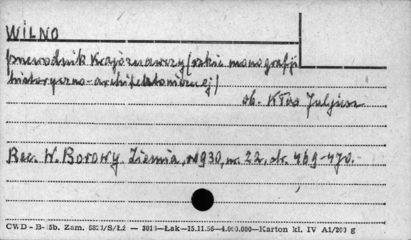 WILNO
przewodnik krajoznawczy (szkic monografji
historyczno-architektonicznej)
ob. Kłos Juljusz
Rec. W. Borowy. Ziemia, r. 1930, nr. 22, str. 469-470.
CWD - B-15b. Zam. 5821/S/Łż — 3013—Łak—15.11.56—4.000.000—Karton kl. IV A1/200 g